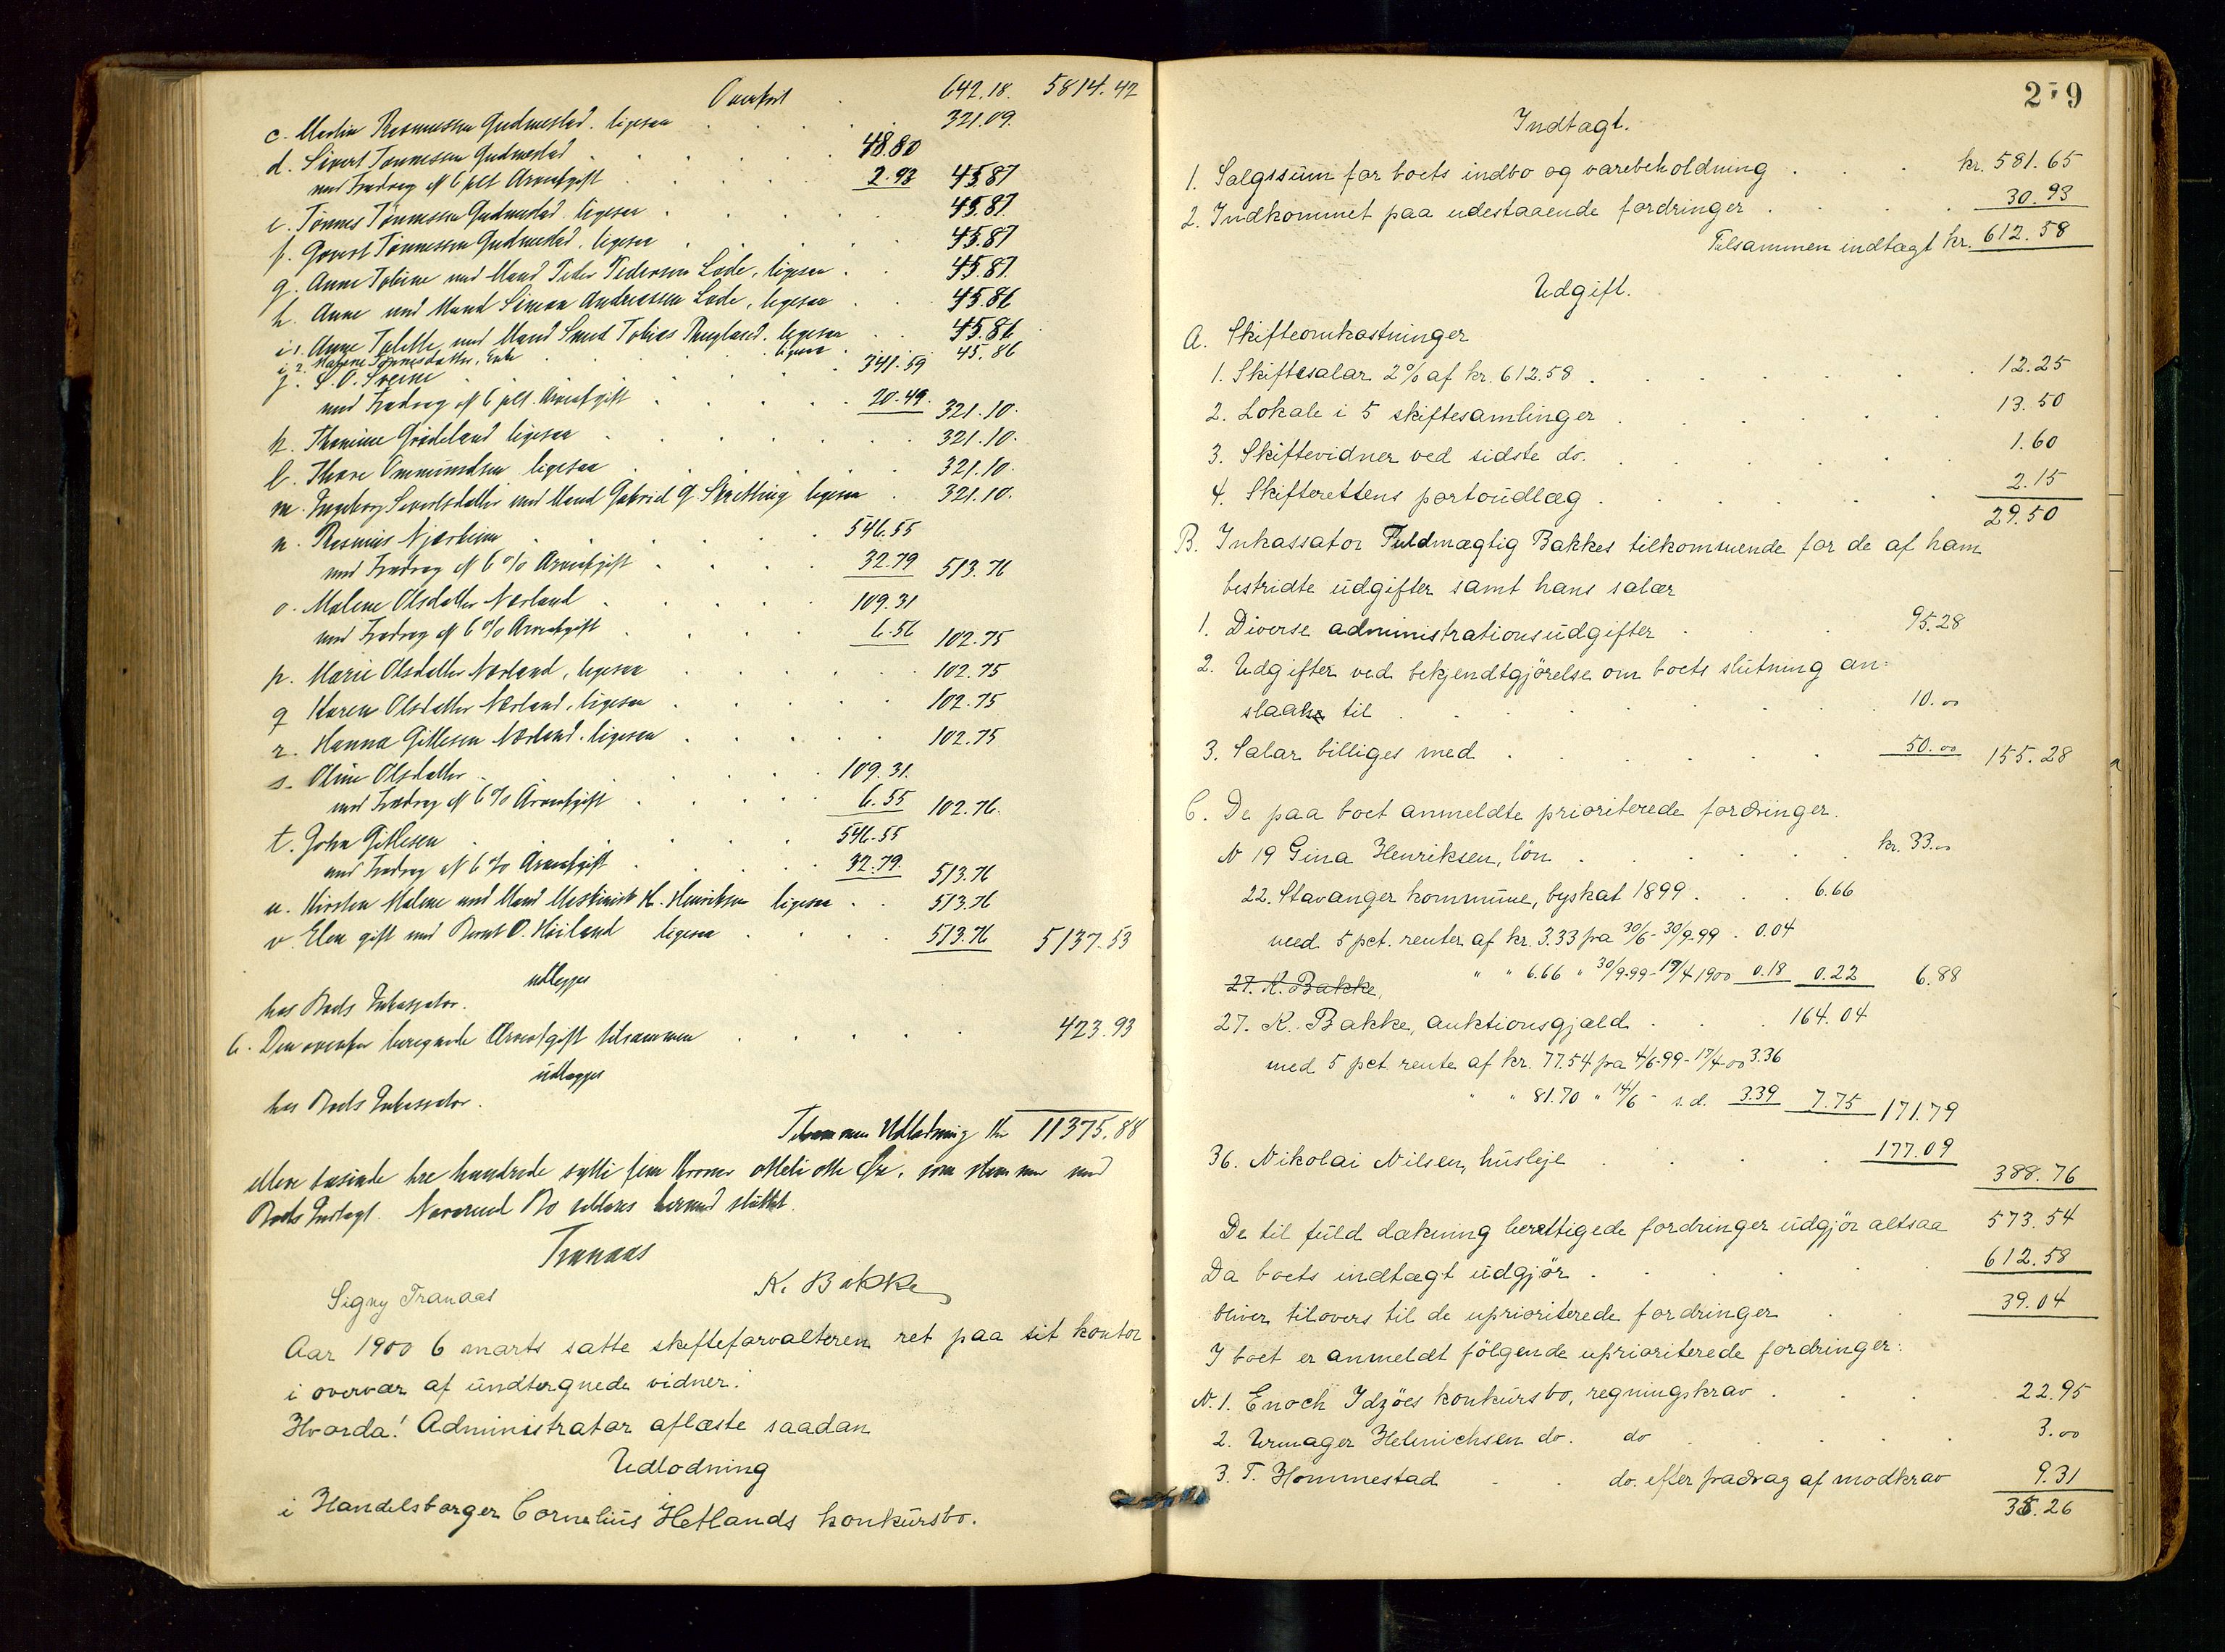 Overført . 642.18. 5814.42
c. Martin Rasmussen Gudmestad. ligesaa . . . . 321.09.
d. Sivert Tønnesen Gudmestad . . . . . 48.80
med Fradrag af 6 pCt Arveafgift . . . . 2.93 45.87
e. Tønnes Tønnessen Gudmestad. ligesaa . . . . 45.87.
f. Govert Tønnessen Gudmestad, ligesaa . . . . 45.87
g. Anne Tobine med Mand Peder Pedersen Lode, ligesaa . . 45.87.
h. Anne med Mand Simon Andreassen Lode, ligesaa . . 45.86
i 1. Anne Talette med Mand Smed Tobias ligesaa . . 45.86
i 2. Malene Tønnesdatter, Enke . . ligesaa . . 45.86
j. S. O. Sverke . . . . . 341.59
med Fradrag af 6 pCt. Arveafgift . . . . 20.49. 321.10.
k. Thomine Grødeland ligesaa . . . . . . 321.10.
l. Thore Ommundsen ligesaa . . . . . 321.10.
m. Ingeborg Sivertsdatter med Mand Gabriel G. Skretting ligesaa . 321.10.
n. Rasmus Njærheim . . . . . 546.55
med Fradrag af 6 % Arveafgift . . . . 32.79 513.76
o. Malene Olsdatter Nærland . . . . 109.31
med Fradrag af 6 % Arveafgift . . . . 6.56 102.75
p. Marie Olsdatter Nærland, ligesaa . . . . . 102.75
q Karen Olsdatter Nærland, ligesaa . . . . 102.75
r. Hanna Gitlesen Nærland. ligesaa . . . . . 102.75
s. Oline Olsdatter . . . . 109.31.
med Fradrag af 6 % Arveafgift . . . . 6.55 102.76.
t. John Gitlesen . . . . 546.55
med Fradrag af 6 % Arveafgift . . . . 32.79. 513.76
u. Kirsten Malene med Mand Maskinist K. Henriksen ligesaa . . 513.76
v. Elen gift med Bernt O. Høiland ligesaa . . . . 513.76 5137.53
udlægges
hos Boets Inkassator.
6. Den ovenfor beregnede Arveafgift tilsammen . . . . . 423.93
udlægges
hos Boets Inkassator.
Tilsammen Udlodning Kr 11375.88
elleve tusinde tre hundrede sytti fem Kroner otteti otte Øre, som stemmer med
Boets Indtægt. Nærværende Bo erklæres hermed sluttet.
Tranaas
Signy Tranaas K. Bakke
Aar 1900 6 marts satte skifteforvalteren ret paa sit kontor
i overvær af undtegnede vidner.
Hvorda! Administrator aflæste saadan
Udlodning
i Handelsborger Cornelius Hetlands konkursbo.
279
Indtægt.
1. Salgssum for boets indbo og varebeholdning . . . kr. 581.65
2. Indkommet paa udestaaende fordringer . . . . 30.93
Tilsammen indtægt kr. 612.58
Udgift.
A. Skifteomkostninger
1. Skiftesalær 2 % af kr. 612.58 . . . . . . 12.25
2. Lokale i 5 skiftesamlinger . . . . 13.50
3. Skiftevidner ved sidste do. . . . . . 1.60
4. Skifterettens portoudlæg . . . . . 2.15
29.50
B. Inkassator Fuldmægtig Bakkes tilkommende for de af ham
bestridte udgifter samt hans salær
1. Diverse administrationsudgifter . . . 95.28
2. Udgifter ved bekjendtgjörelse om boets slutning an=
slaaes til . . . . . . 10.00
3. Salær billiges med . . . . . 50.00 155.28
C. De paa boet anmeldte prioriterede fordringer.
N 19 Gina Henriksen, lön . . . . kr. 33.00
22. Stavanger kommune, byskat 1899 . . . 6.66
med 5 pct. renter af kr. 3.33 fra 30/6-30/9-99 . 0.04
" " 6.66 " 30/9-99-19/4 1900 0.18 0.22 6.88
27. K. Bakke,
27. K. Bakke, auktionsgjæld . . . 164.04
med 5 pct. rente af kr. 77.54 fra 4/6-99-17/4-00 3.36
" " 81.70 " 14/6 - s.d. 3.39 7.75 171.79
36. Nikolai Nilsen, husleje . . . . 177.09
388.76
De til fuld dækning berettigede fordringer udgjör altsaa 573.54
Da boets indtægt udgjör . . . . . 612.58
bliver tilovers til de uprioriterede fordringer . 39.04
I boet er anmeldt fölgende uprioriterede fordringer:
N. 1. Enoch Idsöes konkursbo, regningskrav . . . 22.95
2. Urmager Helmichsen do. do . . . . 3.00
3. T. Hommestad . . do. efter fradrag af modkrav 9.31
35.26